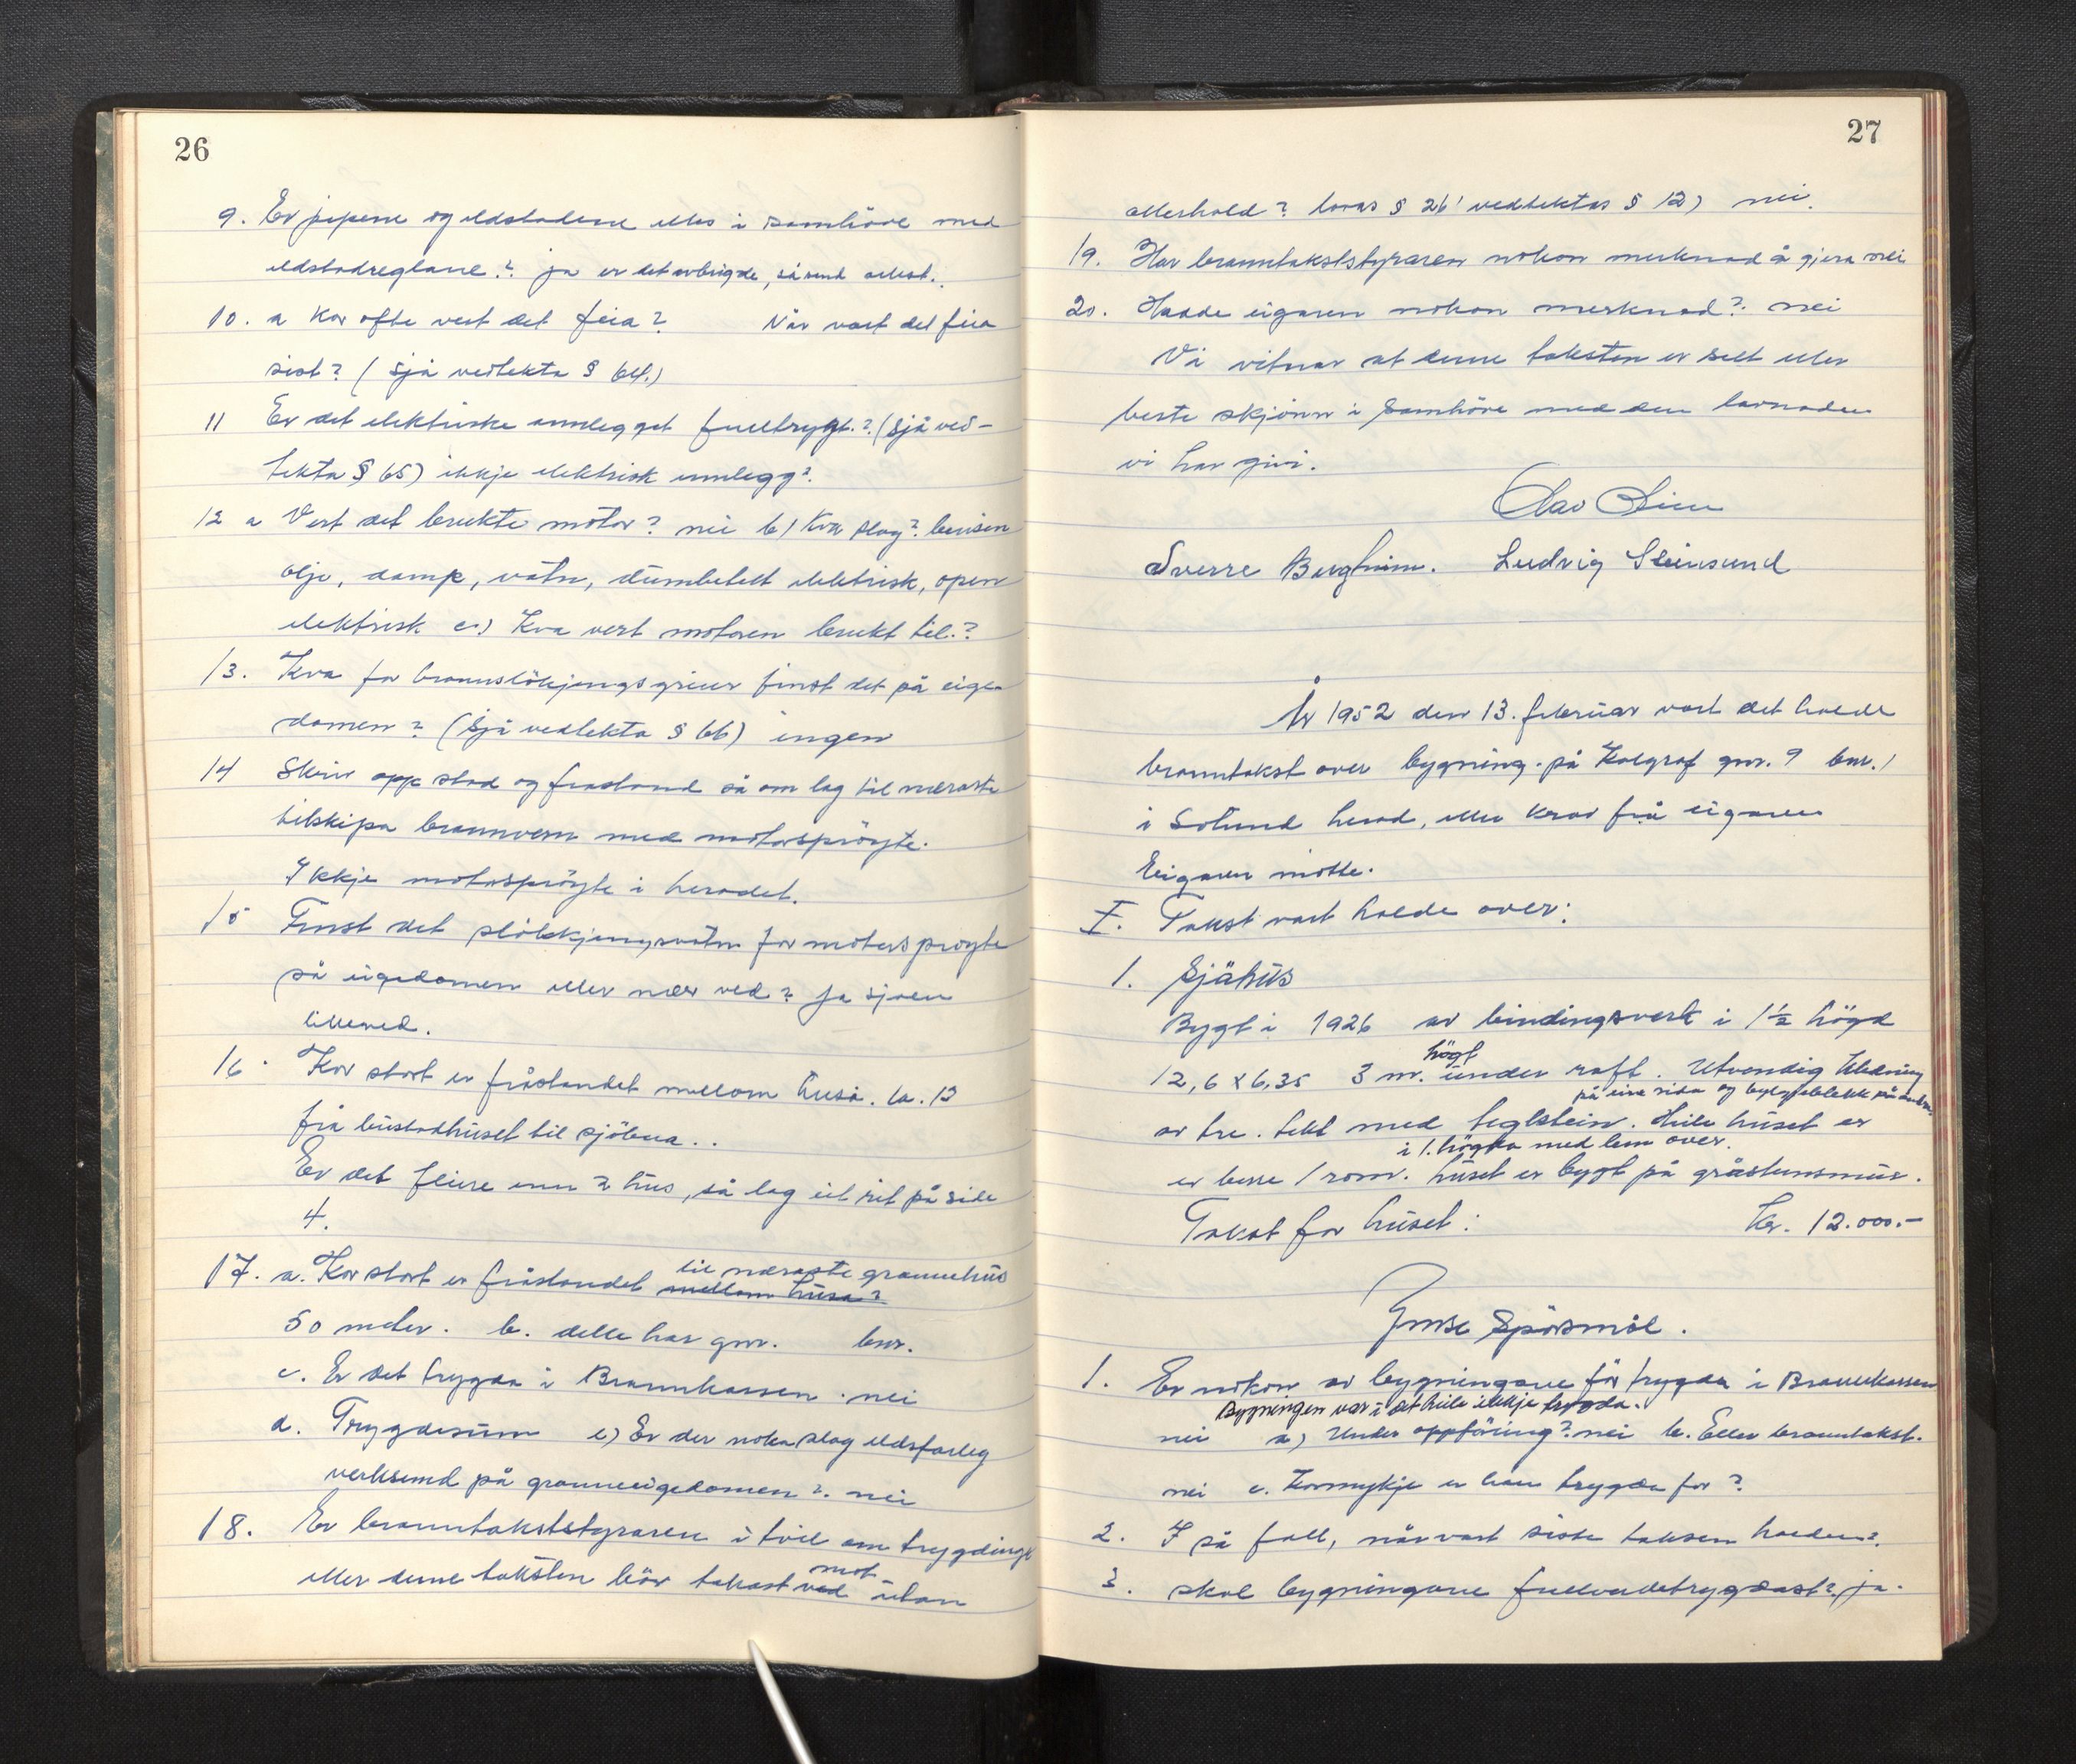 26
9. Er pipene og eldstadene elles i samhöve med
eldstadreglane? ja er det avbrigde, så send attest.
10. a Kor ofte vert det feia? Når vart det feia
sist? (Sjå vedtekta § 64.)
11 Er det elektriske annlegget fulltrygt.? (Sjå ved-
tekta § 65) ikkje elektrisk innlegg?
12 a Vert det brukte motor? nei b) Kva slag? bensin
olje, damp, vatn, elektrisk, open
elektrisk c.) Kva vert motoren brukt til.?
13. Kva for brannslökjingsgreier finst det på eige-
domen? (Sjå vedtekta § 66) ingen
14 Skriv opp stad og frastand så om lag til næraste
tilskipa brannvern med motorspröyte.
Ikkje motorspröyte i heradet.
15 Finst det slökkjingsvatn for motorsproyte
på eigedomen eller nær ved? Ja sjoen
like ved.
16. Kor stort er fråstandet mellom husa. ca. 12
frå bustadhuset til sjöbua..
Er det fleire enn 2 hus, så lag eit rit på side
4.
17. a. Kor stort er fråstandet mellom husa? til næraste grannehus
50 meter. b. dette har gnr. bnr.
c. Er det trygda i Brannkassen. nei
d. Trygdesum e) Er der noka slag eldsfarleg
verksemd på granneeigedomen?. nei
18. Er branntakststyraren i tvil om trygdinga
etter denne taksten bör takast ved mot utan
27
atterhald? lovas § 26' vedtektas § 12) nei.
19. Har branntakststyraren nokon merknad å gjera nei
20. Hadde eigaren nokon merknad? nei
Vi vitnar at denne taksten er sett etter
beste skjönn i samhöve med den lovnaden
vi har givi.
Olav
Sverre Bergheim. Ludvig Steinsund
År 1952 den 13. februar vart det halde
branntakst over bygning. på Kolgrof gnr. 9 bnr. 1
i Solund herad, etter krav frå eigaren
Eigaren mötte.
I. Takst vart halde over:
1. Sjåhus
Bygt i 1926 av bindingsverk i 1½ högd
12,6 x 6,35 3 m. högt under raft. Utvendig kledning
på eine sida og bylgjeblekk på andre.
av tre. tekt med teglstein. Heile huset er
i 1. högda med lem over.
er berre 1 rom. huset er bygt på gråsteinsmur.
Takst for huset: Kr. 12.000.-
Ymse Spörsmål.
1. Er nokon av bygningane för trygda i Brannkassen
Bygningen var i det heile ikkje trygda.
nei a) Under oppföring? nei b. Etter branntakst.
nei c. Kormykje er han trygda for?
2. I så fall, når vart siste taksen halden?.
3. skal bygningane fullverdetrygdast?. ja.